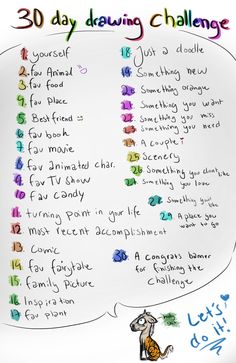 30 day drawing challenge
1. yourself
2. fav Animal
3. fav food
4. fav Place
5. Best friend
6. fav book
7. fav movie
8. fav animated char.
9. fav TV show
10. fav candy
11. turning point in your life
12. most recent accomplishment
13. Comic
14. fav fairytale
15. family Picture
16. Inspiration
17. fav plant
18. Just a doodle
19. Something new
20. Something orange
21. Something you want
22. Something you miss
23. Something you need
24. A couple
25. Scenery
26. Something you don't like
27. Something you love
28. Something you
29. A place you
want to go
30. A congrats banner
for finishing the
challenge
Let's
do it!